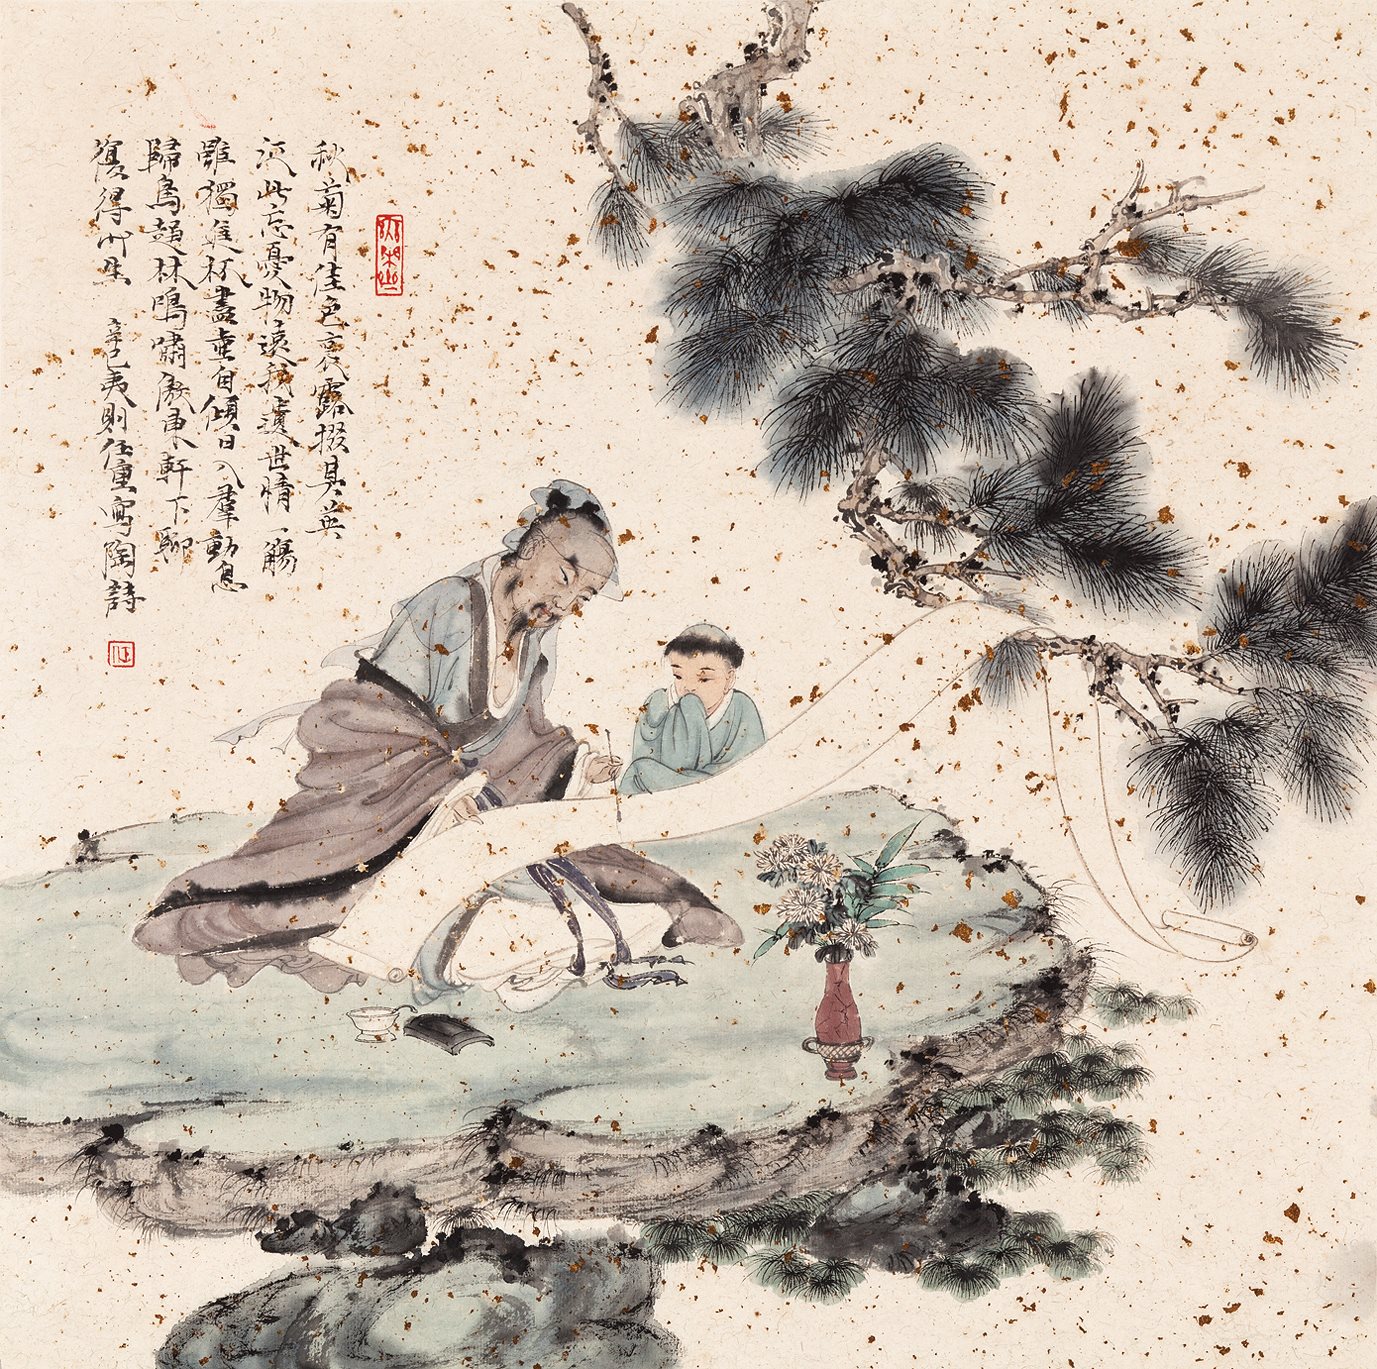 秋菊有佳色裛露掇其英
泛此忘憂物遠我遺世情一觴
雖獨進杯盡壺自傾日入羣動息
歸鳥趨林鳴嘯傲東軒下聊
復得此生 辛巳夷則任重寫陶詩
任